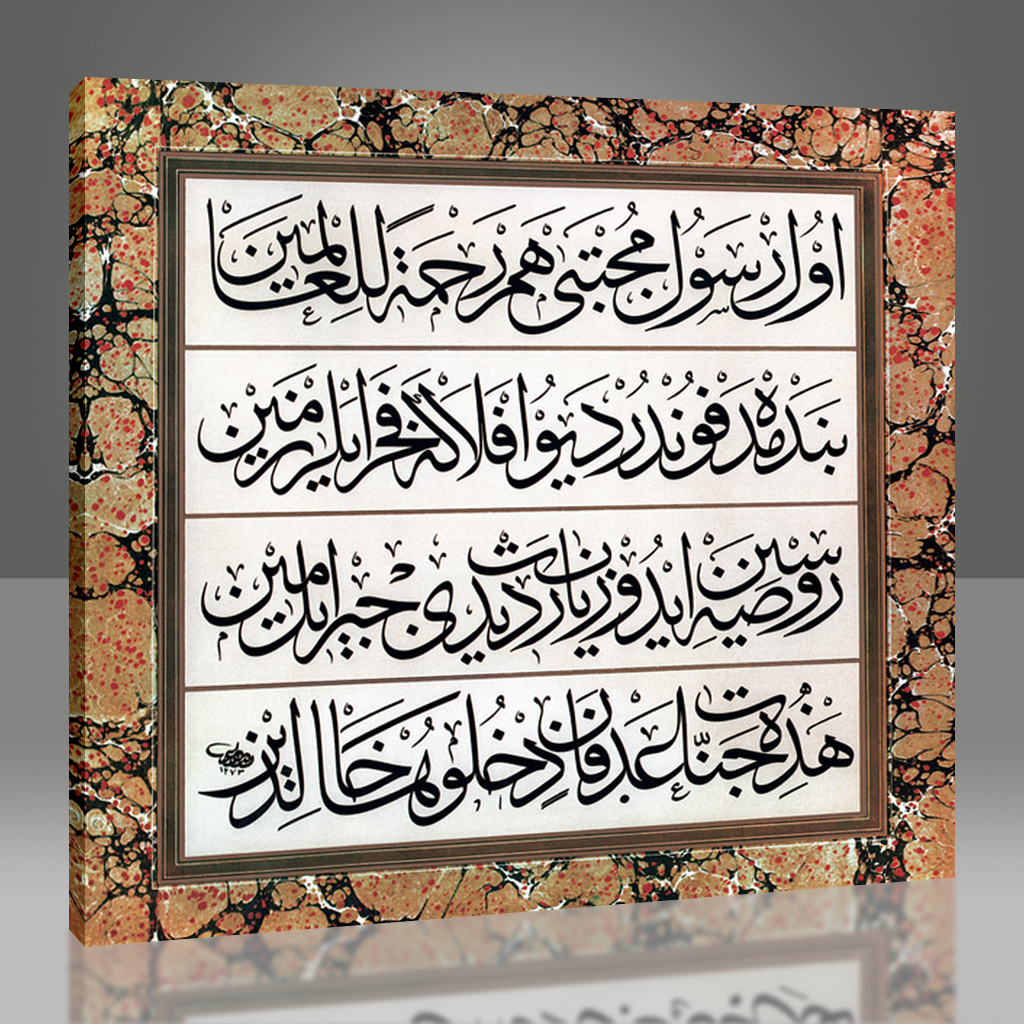 اول رسول مجتبى هم رحمة للعالمين
بنده مدفوندر ديو افلاكه فخر ايلر زمين
روضه سين ايدوب زيارت ديدى جبرائيل امين
هذه جنات عدن فادخلوها خالدين
١٢٧٣